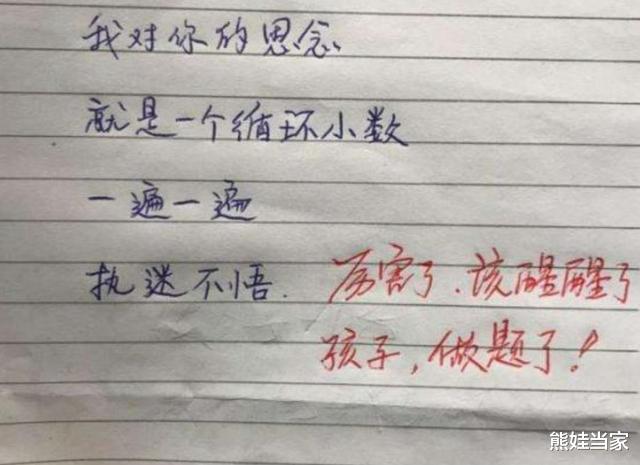 我对你的思念
就是一个循环小数
一遍一遍
执迷不悟. 厉害了.该醒醒了
孩子,做题了!
熊娃当家